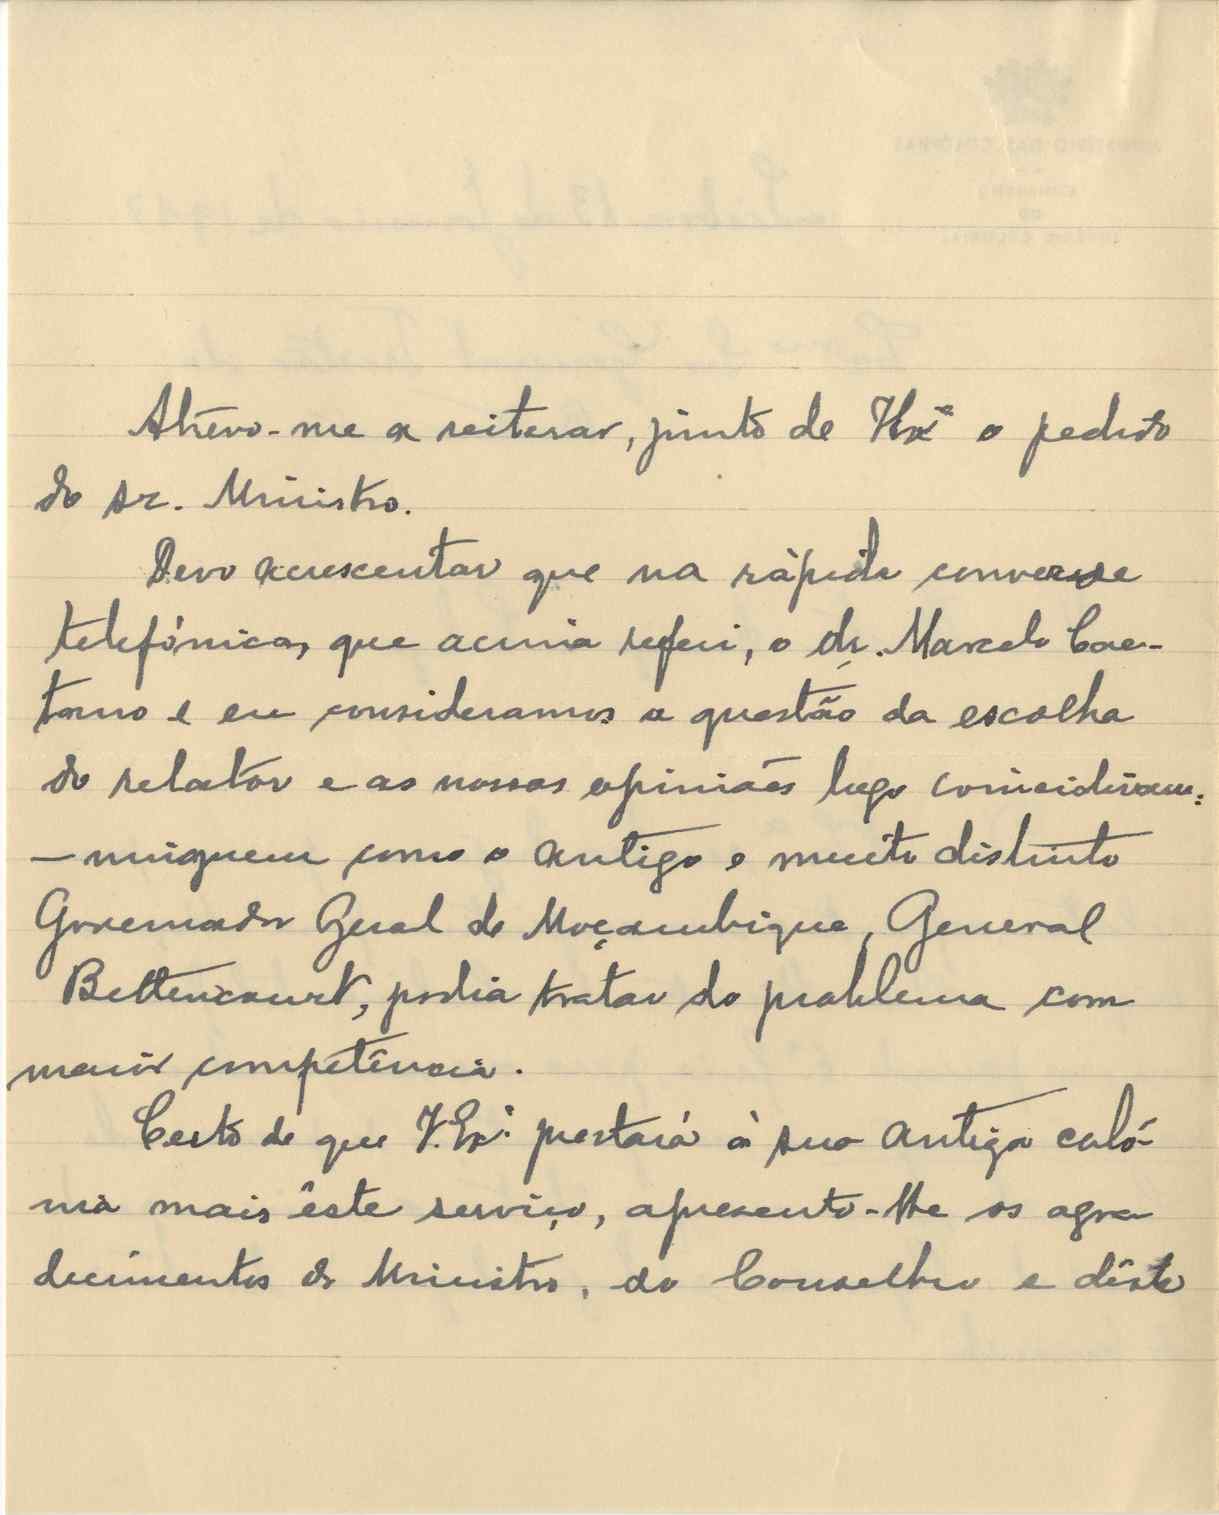 Atrevo-me a reiterar, junto de V.Exª o pedido
do sr. Ministro.
Devo acrescentar que na rápida conversa
telefónica, que acima referi, o dr. Marcelo Cae-
tano e eu consideramos a questão da escolha
do relator e as nossas opiniões logo coincidiram:
— ninguem como o antigo e muito distinto
Governador Geral de Moçambique, General
Bettencourt, podia tratar do problema com
maior competência.
Certo de que V.Exª prestará à sua antiga coló-
nia mais êste serviço, apresento-lhe os agra
decimentos do Ministro, do Conselho e dêste